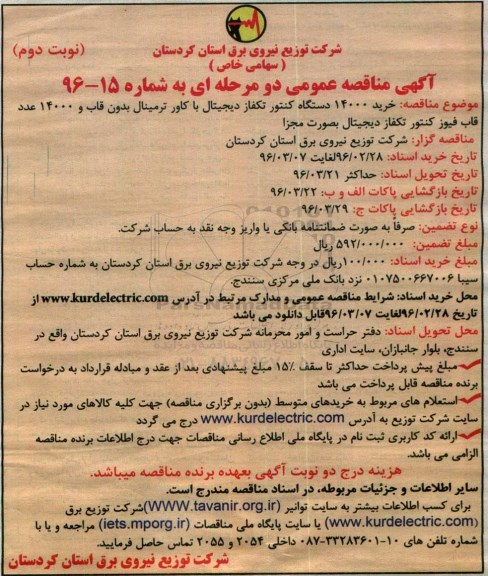 شرکت توزیع نیروی برق استان کردستان
(سهامی خاص)
(نوبت دوم)
آگهی مناقصه عمومی دو مرحله ای به شماره ۱۵-۹۶
موضوع مناقصه: خرید ۱۴۰۰۰ دستگاه کنتور تکفاز دیجیتال با کاور ترمینال بدون قاب و ۱۴۰۰۰ عدد
قاب فیوز کنتور تکفاز دیجیتال بصورت مجزا
مناقصه گزار: شرکت توزیع نیروی برق استان کردستان
تاریخ خرید اسناد: ۹۶/۰۲/۲۸لغایت ۹۶/۰۳/۰۷
تاریخ تحویل اسناد: حداکثر ۹۶/۰۳/۲۱
تاریخ بازگشایی پاکات الف و ب: ۹۶/۰۳/۲۲
تاریخ بازگشایی پاکات ج: ۹۶/۰۳/۲۹
نوع تضمین: صرفاً به صورت ضمانتنامه بانکی یا واریز وجه نقد به حساب شرکت.
مبلغ تضمین: ۵۹۲/۰۰۰/۰۰۰ ریال
مبلغ خرید اسناد: ۱۰۰/۰۰۰ریال در وجه شرکت توزیع نیروی برق استان کردستان به شماره حساب
سیبا ۰۱۰۷۵۰۰۶۶۷۰۰۶ نزد بانک ملی مرکزی سنندج.
محل خرید اسناد: شرایط مناقصه عمومی و مدارک مرتبط در آدرس www.kurdelectric.com از
تاریخ ۹۶/۰۲/۲۸لغایت ۹۶/۰۳/۰۷قابل دانلود می باشد
محل تحویل اسناد: دفتر حراست و امور محرمانه شرکت توزیع نیروی برق استان کردستان واقع در
سنندج، بلوار جانبازان، سایت اداری
مبلغ پیش پرداخت حداکثر تا سقف ۱۵٪ مبلغ پیشنهادی بعد از عقد و مبادله قرارداد به درخواست
برنده مناقصه قابل پرداخت می باشد
استعلام های مربوط به خریدهای متوسط (بدون برگزاری مناقصه) جهت کلیه کالاهای مورد نیاز در
سایت شرکت توزیع به آدرس www.kurdelectric.com درج می گردد
ارائه کد کاربری ثبت نام در پایگاه ملی اطلاع رسانی مناقصات جهت درج اطلاعات برنده مناقصه
الزامی می باشد.
هزینه درج دو نوبت آگهی بعهده برنده مناقصه میباشد.
سایر اطلاعات و جزئیات مربوطه، در اسناد مناقصه مندرج است.
برای کسب اطلاعات بیشتر به سایت توانیر (WWW.tavanir.org.ir)شرکت توزیع برق
(www.kurdelectric.com) یا سایت پایگاه ملی مناقصات (iets.mporg.ir) مراجعه و یا با
شماره تلفن های ۱۰-۳۳۲۸۳۶۰۱-۰۸۷ داخلی ۲۰۵۴ و ۲۰۵۵ تماس حاصل فرمایید.
شرکت توزیع نیروی برق استان کردستان